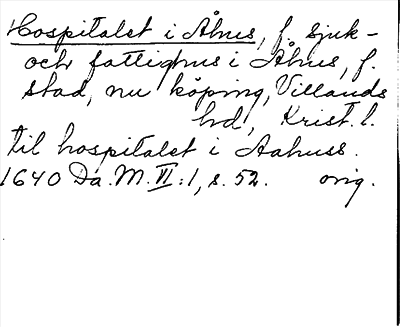 Hospitalet i Åhus, f. sjuk-
och fattighus i Åhus, f.
stad, nu köping, Villands
hd, Krist. l.
til hospitalet i Aahuss.
1640 Da. M. VI:1, s. 52. orig.